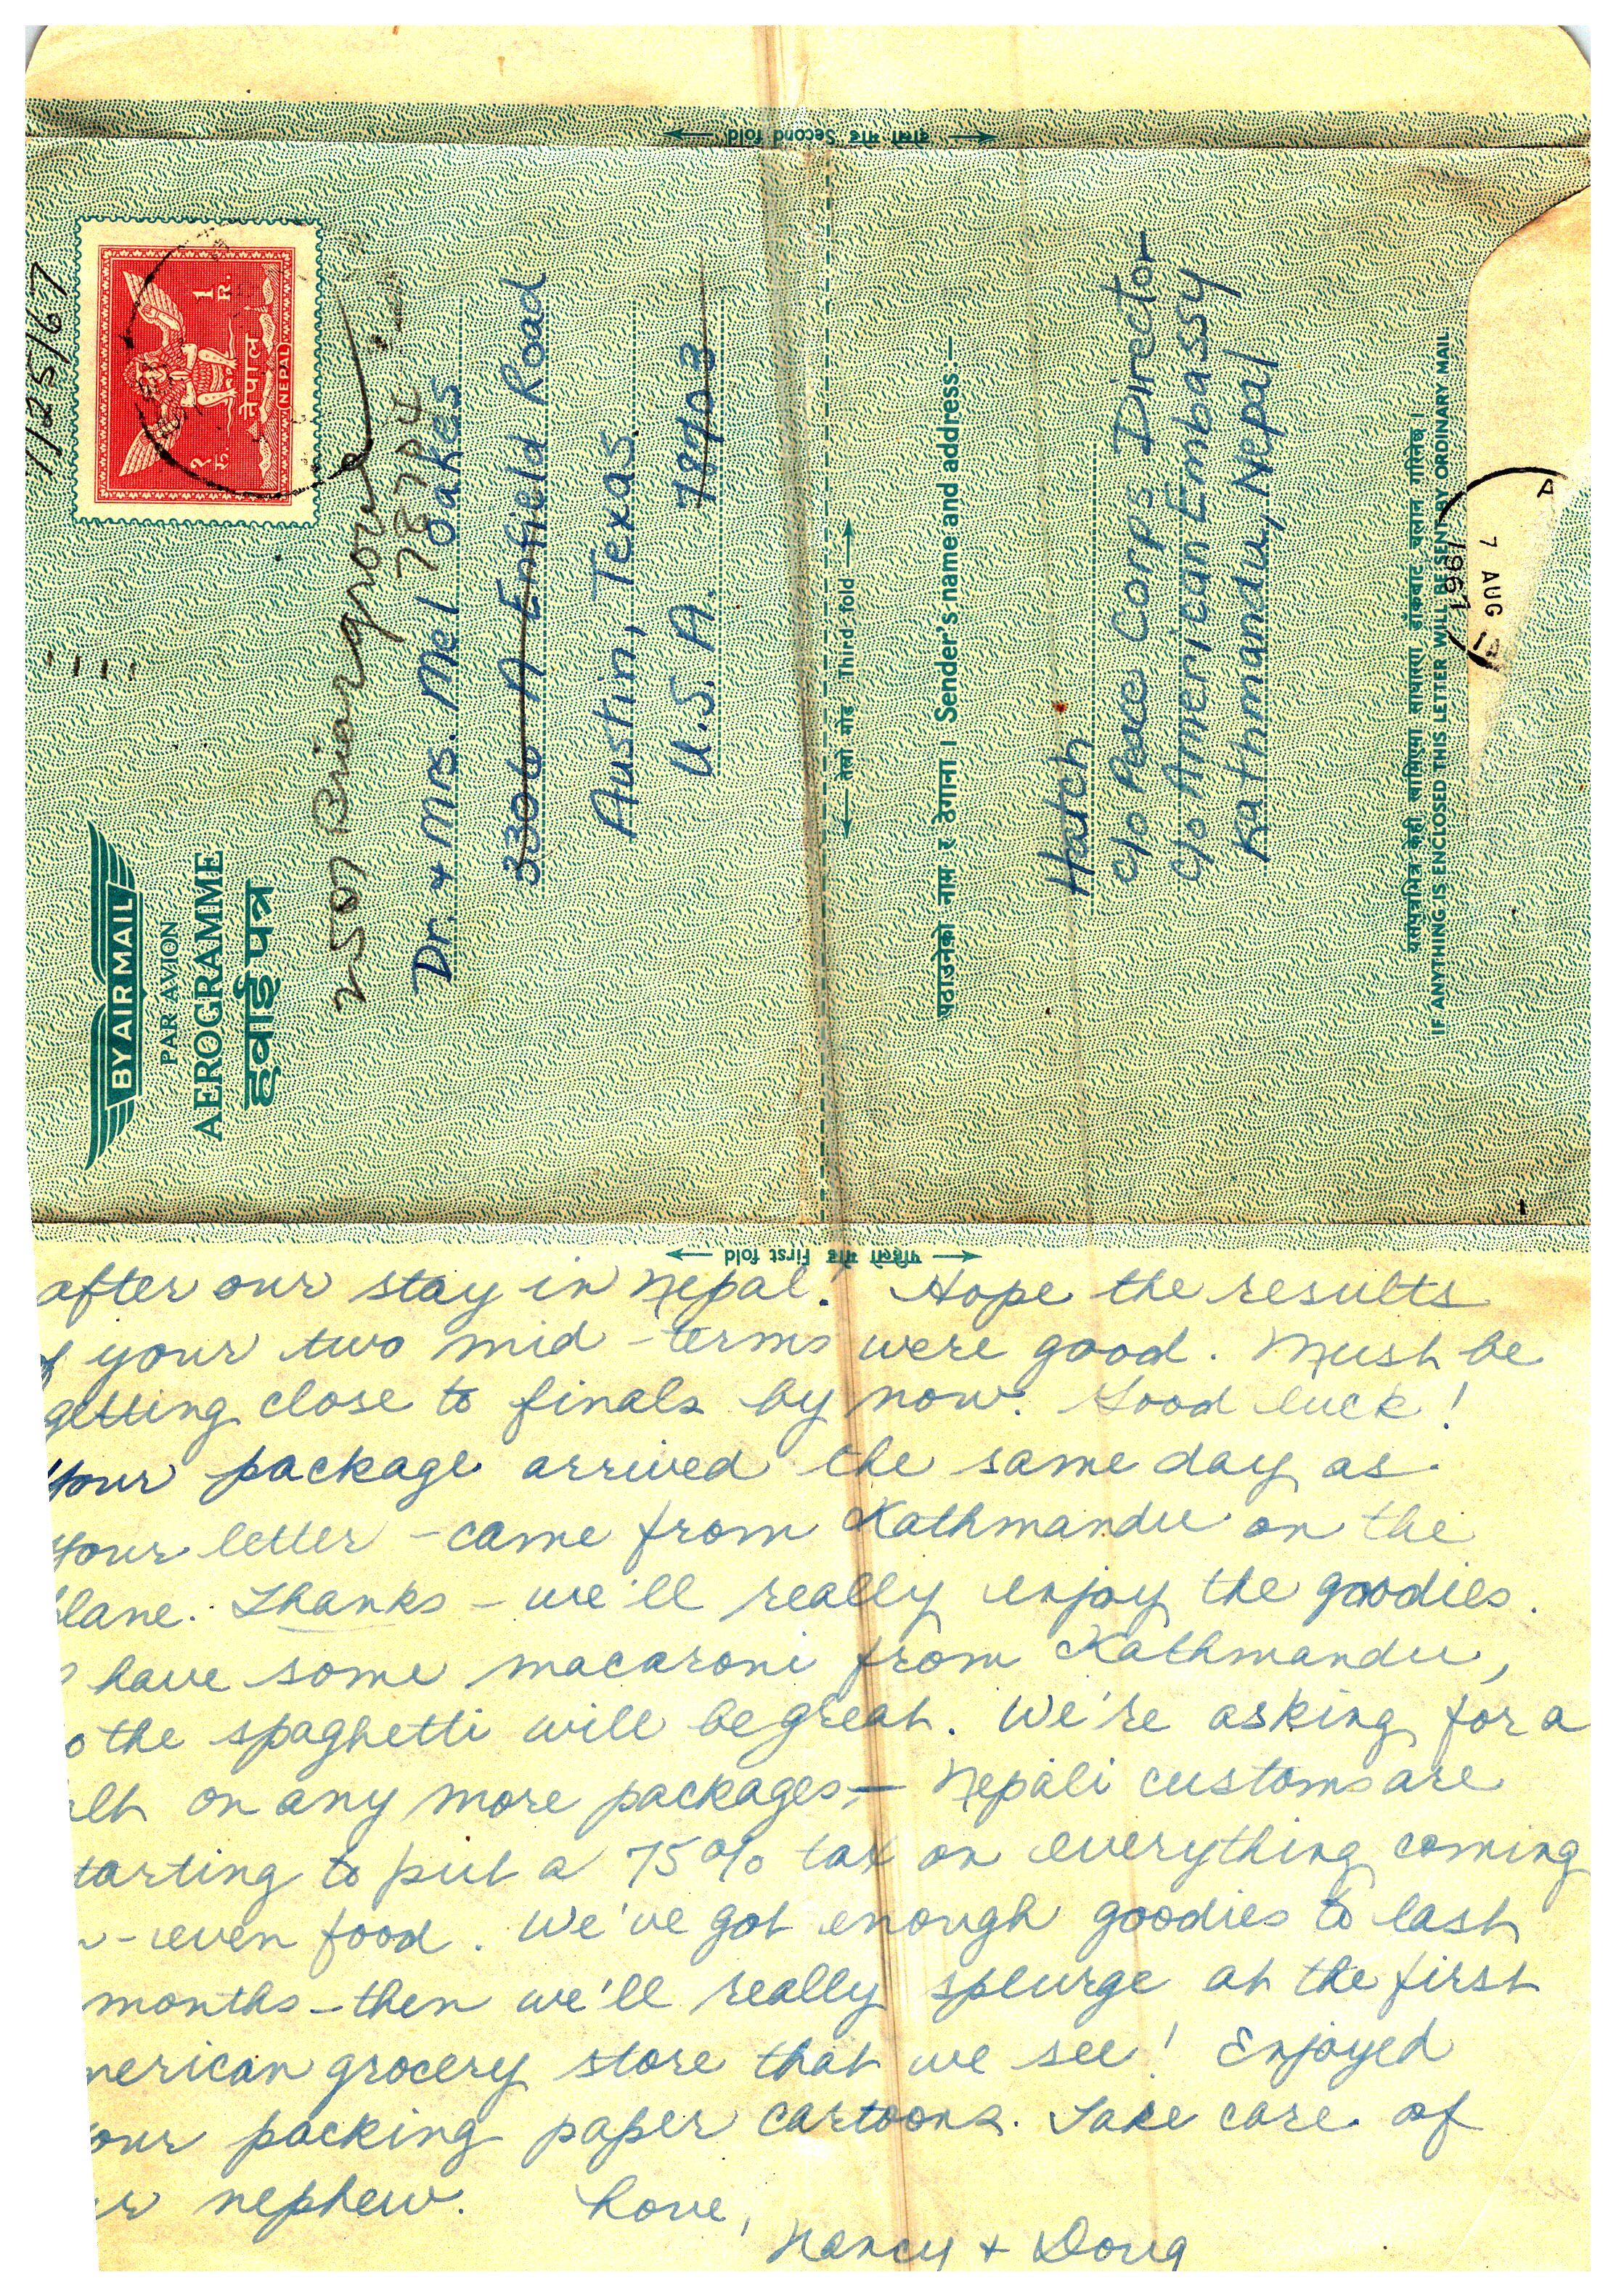 दोस्रो मोड Second fold
7/25/67
१ रु. नेपाल 1 R.
NEPAL
BY AIR MAIL
PAR AVION
AEROGRAMME
हवाई पत्र
2507 Briargrove
78704
Dr. & Mrs. Mel Oakes
3306 A Enfield Road
Austin, Texas
U.S.A. 78703
तेस्रो मोड Third fold
पठाउनेको नाम र ठेगाना । Sender's name and address:—
Hatch
c/o Peace Corps Director
c/o American Embassy
Kathmandu, Nepal
यसपत्रभित्र केही राखिएमा साधारण डाँकबाट चलान गरिनेछ ।
IF ANYTHING IS ENCLOSED THIS LETTER WILL BE SENT BY ORDINARY MAIL
7 AUG
1967
पहिलो मोड First fold
after our stay in Nepal! Hope the results
of your two mid-terms were good. Must be
getting close to finals by now. Good luck!
Your package arrived the same day as
your letter - came from Kathmandu on the
lane. Thanks - we'll really enjoy the goodies.
have some macaroni from Kathmandu,
o the spaghetti will be great. We're asking for a
alt on any more packages, - Nepali customs are
tarting to put a 75% tax on everything coming
n - even food. We've got enough goodies to last
months - then we'll really splurge at the first
merican grocery store that we see! Enjoyed
our packing paper cartoons. Take care of
ur nephew. Love,
Nancy & Doug